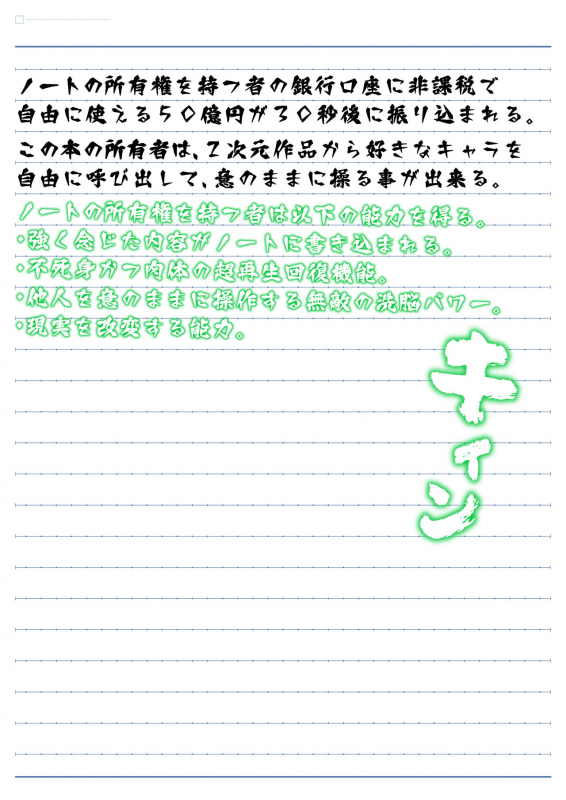 ノートの所有権を持つ者の銀行口座に非課税で
自由に使える５０億円が３０秒後に振り込まれる。
この本の所有者は、２次元作品から好きなキャラを
自由に呼び出して、意のままに操る事が出来る。
ノートの所有権を持つ者は以下の能力を得る。
・強く念じた内容がノートに書き込まれる。
・不死身かつ肉体の超再生回復機能。
・他人を意のままに操作する無敵の洗脳パワー。
・現実を改変する能力。
キィン